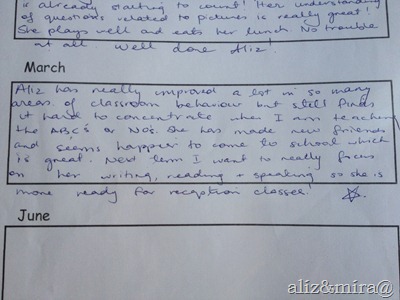 is already starting to count! Her understanding
of questions related to pictures is really great!
She plays well and eats her lunch. No trouble
at all. Well done Aliz!
March
Aliz has really improved a lot in so many
areas of classroom behaviour but still finds
it hard to concentrate when I am teaching
the ABC's or No's. She has made new friends
and seems happier to come to school which
is great. Next term I want to really focus
on her writing, reading + speaking so she is
more ready for reception classes!
June
aliz&mira@